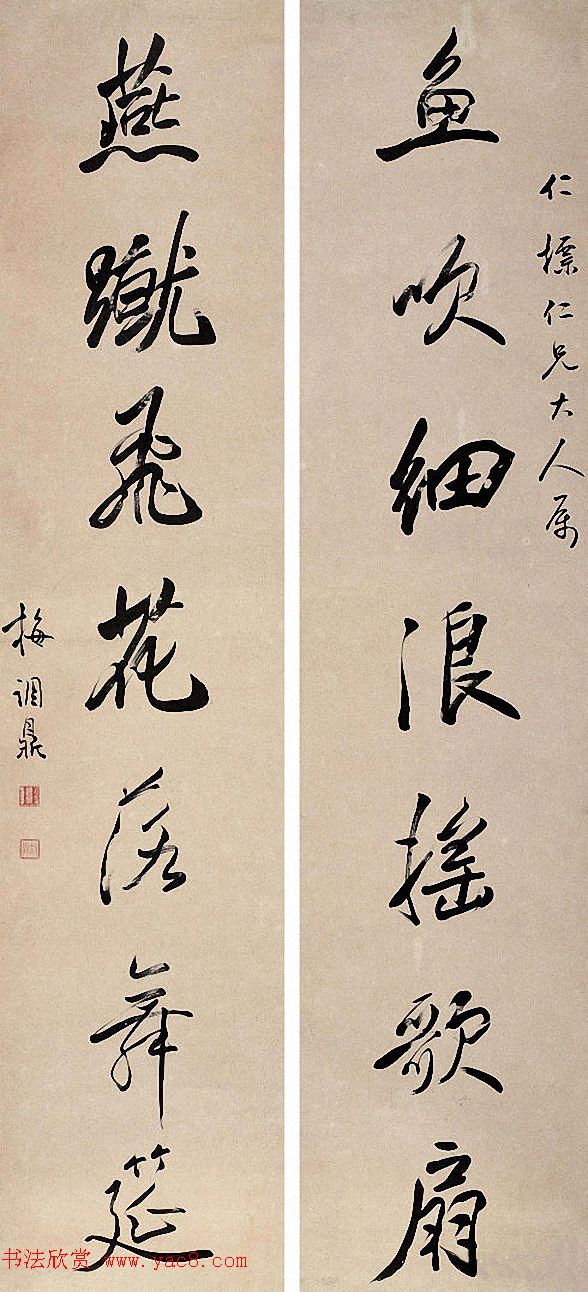 仁標仁兄大人属
魚吹細浪摇歌扇
燕蹴飛花落舞筵
梅调鼎
书法欣赏 www.yac8.com